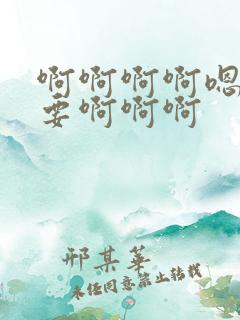 啊啊啊啊嗯
要啊啊啊
邢某华
未经同意禁止转载